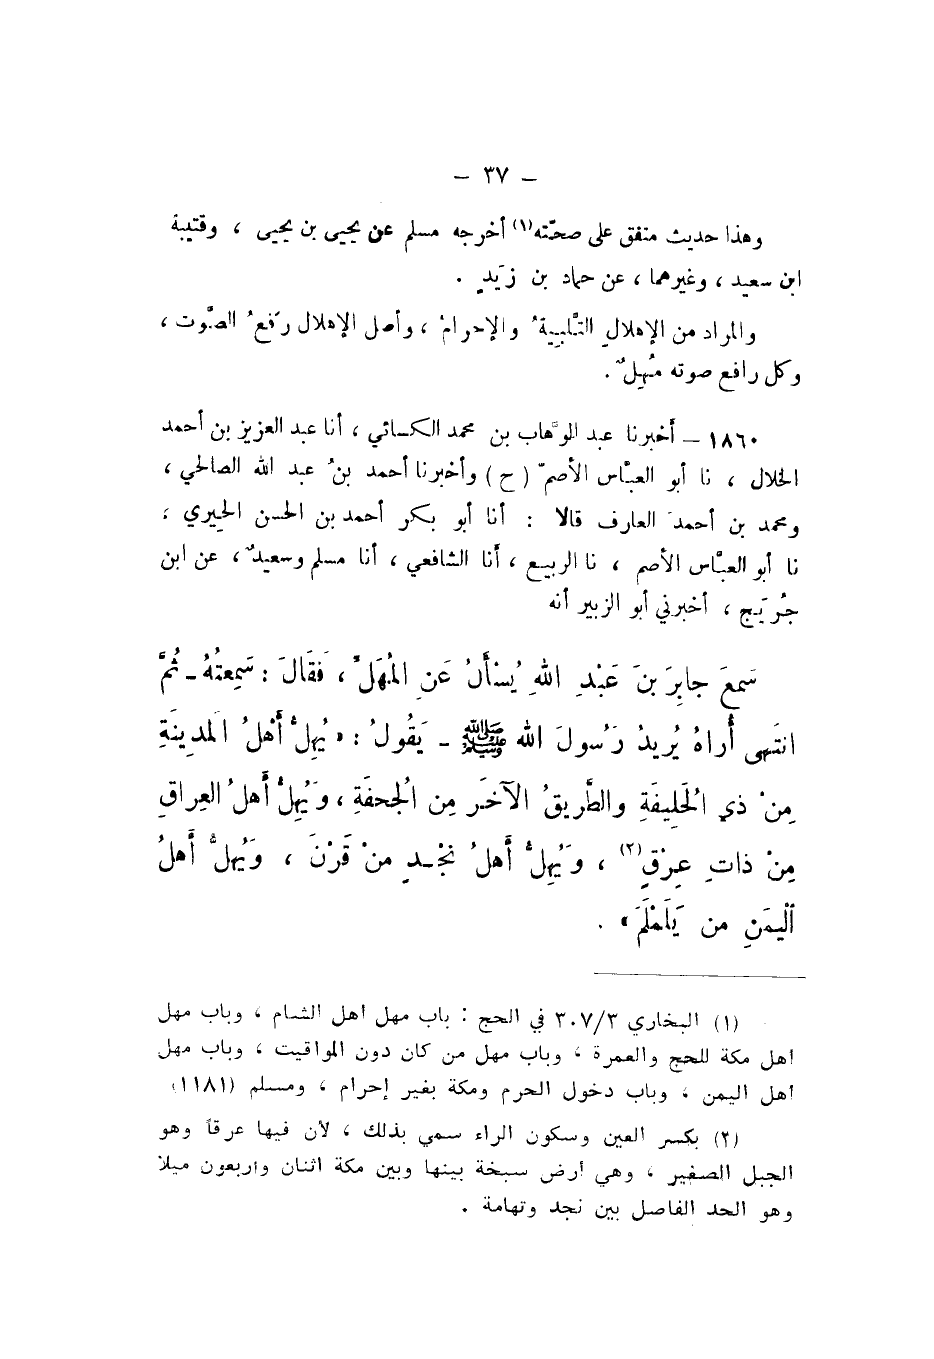 ـ ٣٧ ـ
وهذا حديث متفق على صحّته(١) أخرجه مسلم عن يحيى بن يحيى ، وقتيبة
ابن سعيد ، وغيرهما ، عن حماد بن زَيدٍ .
والمراد من الإهلالِ التَّلبِيةُ والإحرامُ ، وأصل الإهلال رَفعُ الصَّوت ،
وكل رافع صوته مُهِلٌّ .
١٨٦٠ ـ أخبرنا عبد الوهَّاب بن محمد الكسائي ، أنا عبد العزيز بن أحمد
الخلال ، نا أبو العبَّاس الأصمّ ( ح ) وأخبرنا أحمد بنُ عبد الله الصالحي ،
ومحمد بن أحمدَ العارف قالا : أنا أبو بكر أحمد بن الحسن الحِيري ،
نا أبو العبَّاس الأصم ، نا الربيع ، أنا الشافعي ، أنا مسلم وسعيدٌ ، عن ابن
جُرَيج ، أخبرني أبو الزبير أنه
سَمِعَ جابِرَ بنَ عَبْدِ اللهِ يُسْأَلُ عَنِ المُهَلِّ ، فَقَالَ : سَمِعتُهُ ـ ثُمَّ
انتَهى أُراهُ يُريدُ رَسُولَ الله ﷺ ـ يَقُولُ : « يُهِلُّ أَهْلُ المَدِينَةِ
مِنْ ذي الحُلَيفَةِ والطَّريقُ الآخَرَ مِن الجُحفَةِ ، وَيُهِلُّ أَهلُ العِراقِ
مِنْ ذاتِ عِرْقٍ(٢) ، وَيُهِلُّ أَهلُ نَجْدٍ مِنْ قَرْنَ ، وَيُهِلُّ أَهلُ
أليَمَنِ مِن يَلَمْلَمَ » .
(١) البخاري ٣٠٧/٣ في الحج : باب مهل أهل الشام ، وباب مهل
أهل مكة للحج والعمرة ، وباب مهل من كان دون المواقيت ، وباب مهل
أهل اليمن ، وباب دخول الحرم ومكة بغير إحرام ، ومسلم (١١٨١)
(٢) بكسر العين وسكون الراء سمي بذلك ، لأن فيها عرقاً وهو
الجبل الصغير ، وهي أرض سبخة بينها وبين مكة اثنان وأربعون ميلاً
وهو الحد الفاصل بين نجد وتهامة .